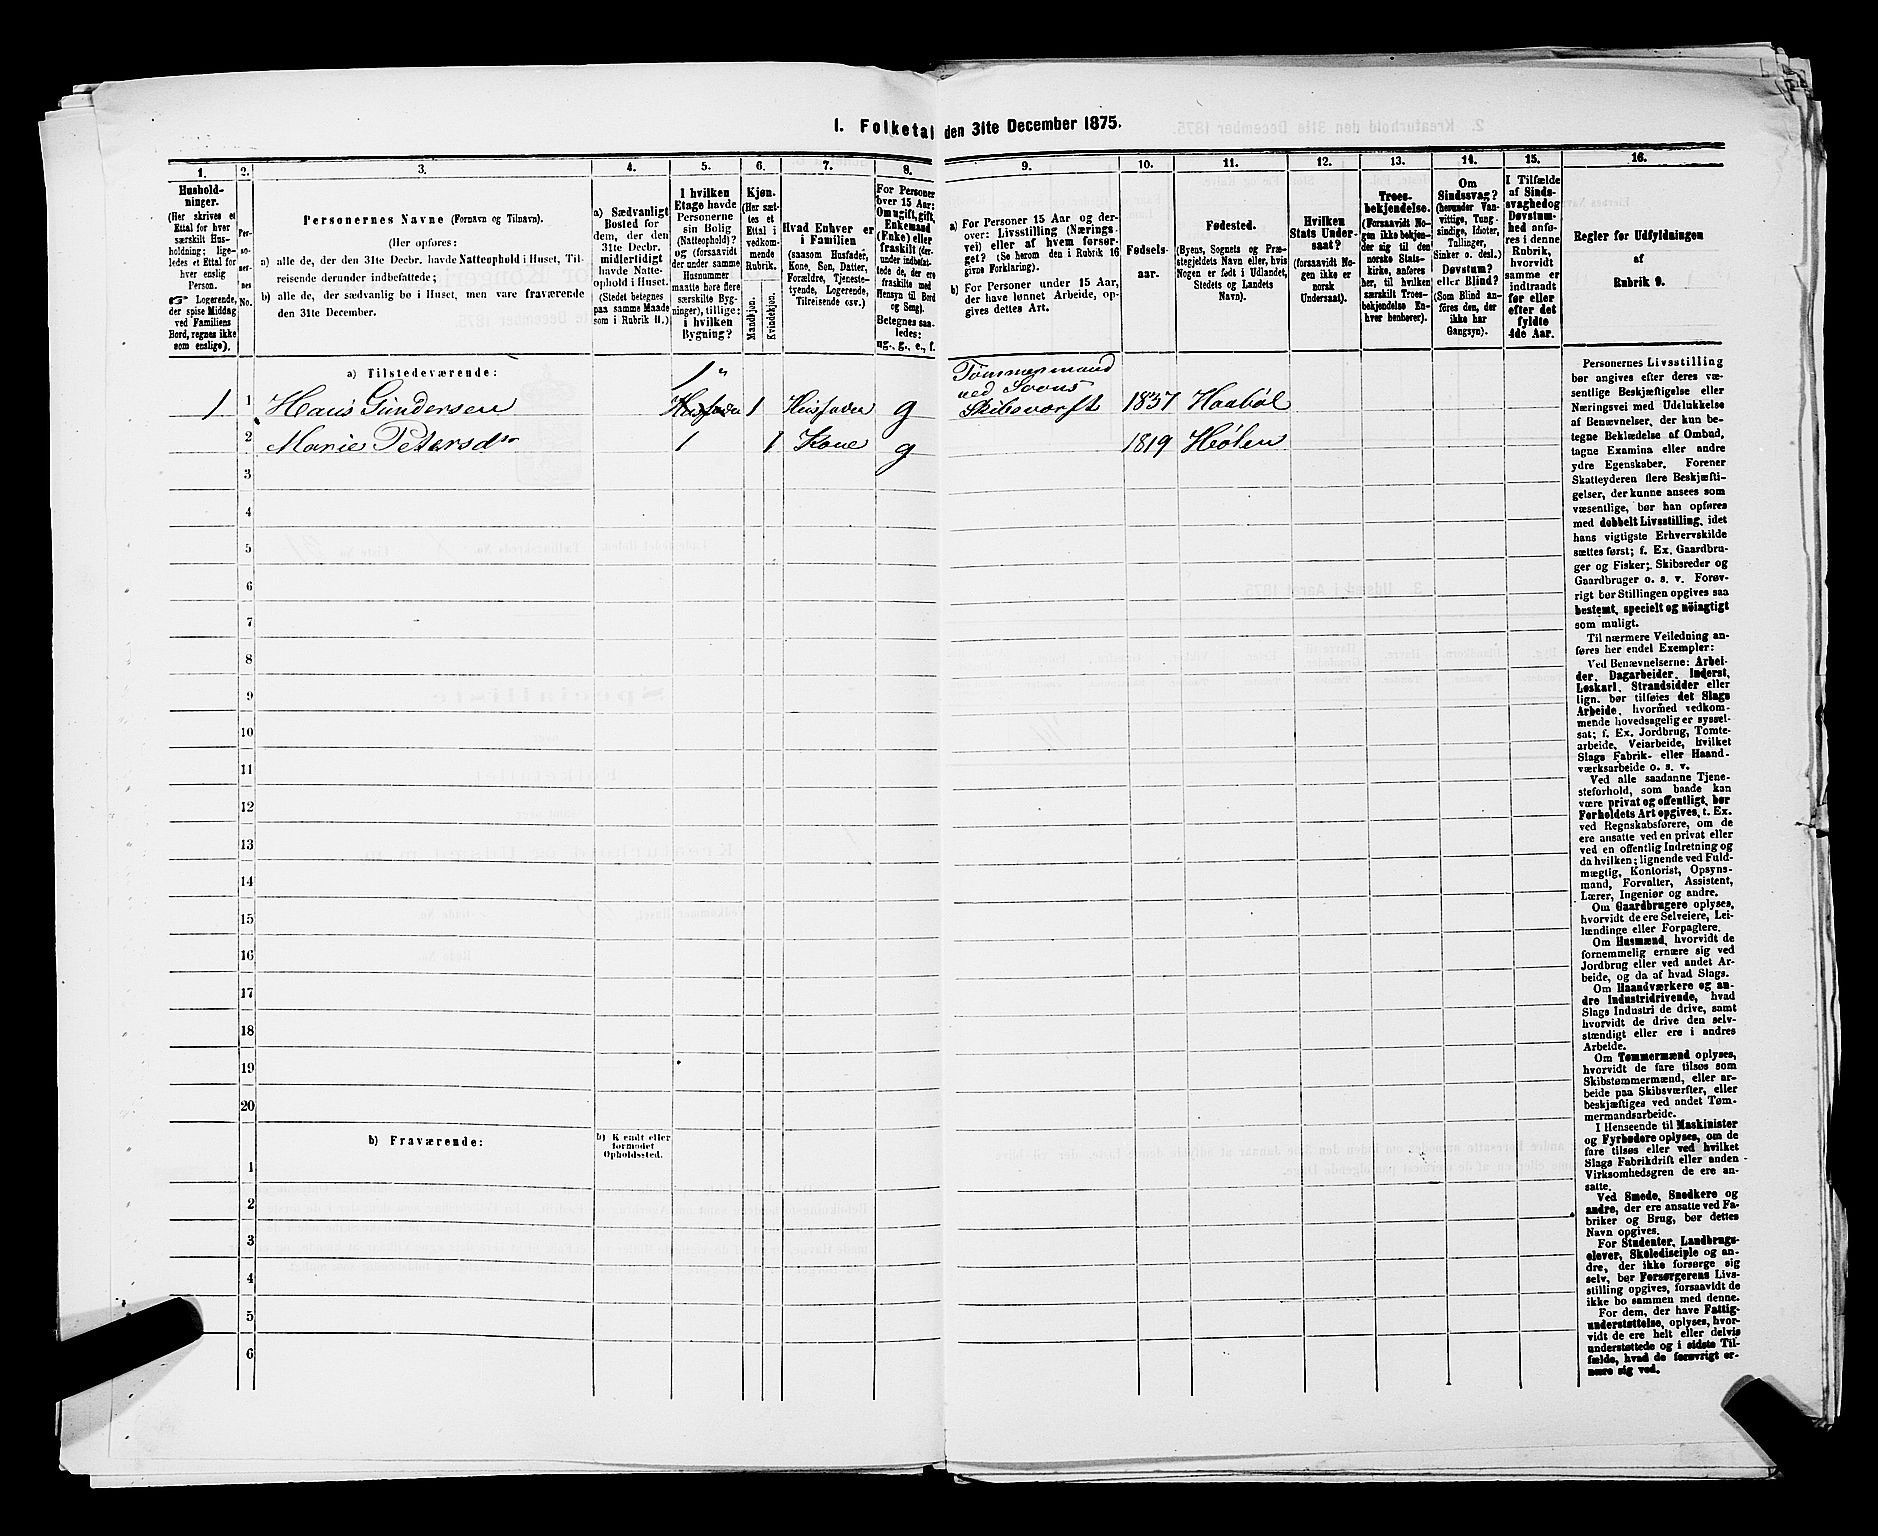 1. Folketal den 31te December 1875.
1.
2.
3.
4.
5.
6.
7.
8.
9.
10.
11.
12.
13.
14.
15.
16.
Hushold-
ninger.
(Her skrives et
Ettal for hver
særskilt Hus-
holdning; lige-
ledes et Ettal for
hver enslig
Person.
☞ Logerende,
der spise Middag
ved Familiens
Bord, regnes ikke
som enslige).
Per-
so-
ner-
nes
No.
Personernes Navne (Fornavn og Tilnavn).
(Her opføres:
a) alle de, der den 31te Decbr. havde Natteophold i Huset, Til-
reisende derunder indbefattede;
b) alle de, der sædvanlig bo i Huset, men vare fraværende
den 31te December.
a) Sædvanligt
Bosted for
dem, der den
31te Decbr.
midlertidigt
havde Natte-
ophold i Huset.
(Stedet betegnes
paa samme Maade
som i Rubrik 11.)
I hvilken
Etage havde
Personerne
sin Bolig
(Natteophold)?
og (forsaavidt
der under samme
Husnummer
maatte høre flere
særskilte Byg-
ninger), tillige:
i hvilken
Bygning?
Kjøn.
(Her sæt-
tes et
Ettal i
vedkom-
mende
Rubrik.
Mandkjøn.
Kvindekjøn.
Hvad Enhver er
i Familien
(saasom Husfader,
Kone, Søn, Datter,
Forældre, Tjeneste-
tyende, Logerende,
Tilreisende osv.)
For Personer
over 15 Aar:
Om ugift, gift,
Enkemand
(Enke) eller
fraskilt (der-
under indbefat-
tede de, der ere
fraskilte med
Hensyn til Bord
og Seng).
Betegnes saa-
ledes:
ug., g., e., f.
a) For Personer 15 Aar og der-
over: Livsstilling (Nærings-
vei) eller af hvem forsør-
get? (Se herom den i Rubrik 16
givne Forklaring).
b) For Personer under 15 Aar,
der have lønnet Arbeide, op-
gives dettes Art.
Fødsels-
aar.
Fødested.
(Byens, Sognets og Præ-
stegjeldets Navn eller, hvis
Nogen er født i Udlandet,
Stedets og Landets
Navn).
Hvilken
Stats Under-
saat?
(forsaavidt No-
gen ikke er
norsk
Undersaat).
Troes-
bekjendelse.
(Forsaavidt No-
gen ikke bekjen-
der sig til den
norske Stats-
kirke, anføres
her, til hvilken
særskilt Troes-
bekjendelse En-
hver henhører).
Om
Sindssvag?
(herunder Van-
vittige, Tung-
sindige, Idioter,
Tullinger,
Sinker o. desl.)
Døvstum?
eller Blind?
(Som Blind an-
føres den, der
ikke har
Gangsyn).
I Tilfælde
af Sinds-
svaghed og
Døvstum-
hed anfø-
res i denne
Rubrik,
hvorvidt
samme er
indtraadt
før eller
efter det
fyldte
4de Aar.
Regler før Udfyldningen
af
Rubrik 9.
a) Tilstedeværende:
1 "
Tømmermand
ved Soons
1 1 Hans Gundersen Husfader 1 Husfader g Skibsværft 1837 Haabøl
2 Marie Petersdtr 1 1 Kone g 1819 Hølen
3
4
5
6
7
8
9
10
11
12
13
14
15
16
17
18
19
20
b) Fraværende:
b) Kjendt eller
formodet
Opholdssted.
1
2
3
4
5
6
Personernes Livsstilling
bør angives efter deres væ-
sentlige Beskjæftigelse eller
Næringsvei med Udelukkelse
af Benævnelser, der kun be-
tegne Beklædelse af Ombud,
tagne Examina eller andre
ydre Egenskaber. Forener
Skatteyderen flere Beskjæfti-
gelser, der kunne ansees som
væsentlige, bør han opføres
med dobbelt Livsstilling, idet
hans vigtigste Erhvervskilde
sættes først; f. Ex. Gaardbru-
ger og Fisker; Skibsreder og
Gaardbruger o. s. v. Forøv-
rigt bør Stillingen opgives saa
bestemt, specielt og nöiagtigt
som muligt.
Til nærmere Veiledning an-
føres her endel Exempler:
Ved Benævnelserne: Arbei-
der, Dagarbeider, Inderst,
Løskarl, Strandsidder eller
lign. bør tilføies det Slags
Arbeide, hvormed vedkom-
mende hovedsagelig er syssel-
sat; f. Ex. Jordbrug, Tomte-
arbeide, Veiarbeide, hvilket
Slags Fabrik- eller Haand-
værksarbeide o. s. v.
Ved alle saadanne Tjene-
steforhold, som baade kan
være privat og offentligt, bør
Forholdets Art opgives, t. Ex.
ved Regnskabsførere, om de
ere ansatte ved en privat eller
ved en offentlig Indretning og
da hvilken; lignende ved Fuld-
mægtig, Kontorist, Opsyns-
mand, Forvalter, Assistent,
Lærer, Ingeniør og andre.
Om Gaardbrugere oplyses,
hvorvidt de ere Selveiere, Lei-
lændinge eller Forpagtere.
Om Husmænd, hvorvidt de
fornemmelig ernære sig ved
Jordbrug eller ved andet Ar-
beide, og da af hvad Slags.
Om Haandværkere og an-
dre Industridrivende, hvad
Slags Industri de drive, samt
hvorvidt de drive den selv-
stændigt eller ere i andres
Arbeide.
Om Tømmermænd oplyses,
hvorvidt de fare tilsøs som
Skibstømmermænd, eller ar-
beide paa Skibsværfter, eller
beskjæftiges ved andet Tøm-
mermandsarbeide.
I Henseende til Maskinister
og Fyrbødere oplyses, om de
fare tilsøs eller ved hvilket
Slags Fabrikdrift eller anden
Virksomhedsgren de ere an-
satte.
Ved Smede, Snedkere og
andre, der ere ansatte ved Fa-
briker og Brug, bør dettes
Navn opgives.
For Studenter, Landbrugs-
elever, Skoledisciple og an-
dre, der ikke forsørge sig
selv, bør Forsørgerens Livs-
stilling opgives, forsaavidt de
ikke bo sammen med denne.
For dem, der have Fattig-
understøttelse, oplyses, hvor-
vidt de ere helt eller delvis
understøttede og i sidste Til-
fælde, hvad de forøvrigt er-
nære sig ved.